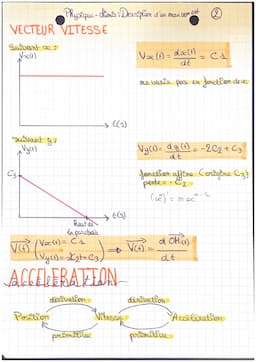 Physique-chimie: Description d'un mouvement ②
VECTEUR VITESSE
Suivant x:
Vx(t)
t(s)
Vx(t) = dx(t)/dt = C1
ne varie pas en fonction de x
Suivant y:
Vy(t)
C3
t(s)
Haut de
la parabole
Vy(t) = dy(t)/dt = -2C2 + C3
fonction affine (origine C3)
pente = - C2
V(t) (Vx(t) = C1
Vy(t) = -2C2+C3) ⟹ V(t) = d OM(t)/dt
ACCELERATION
dérivation dérivation
Position Vitesse Accélération
primitive primitive